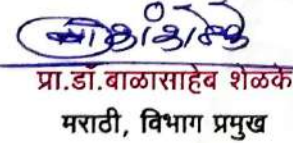 प्रा.डॉ.बाळासाहेब शेळके
मराठी, विभाग प्रमुख